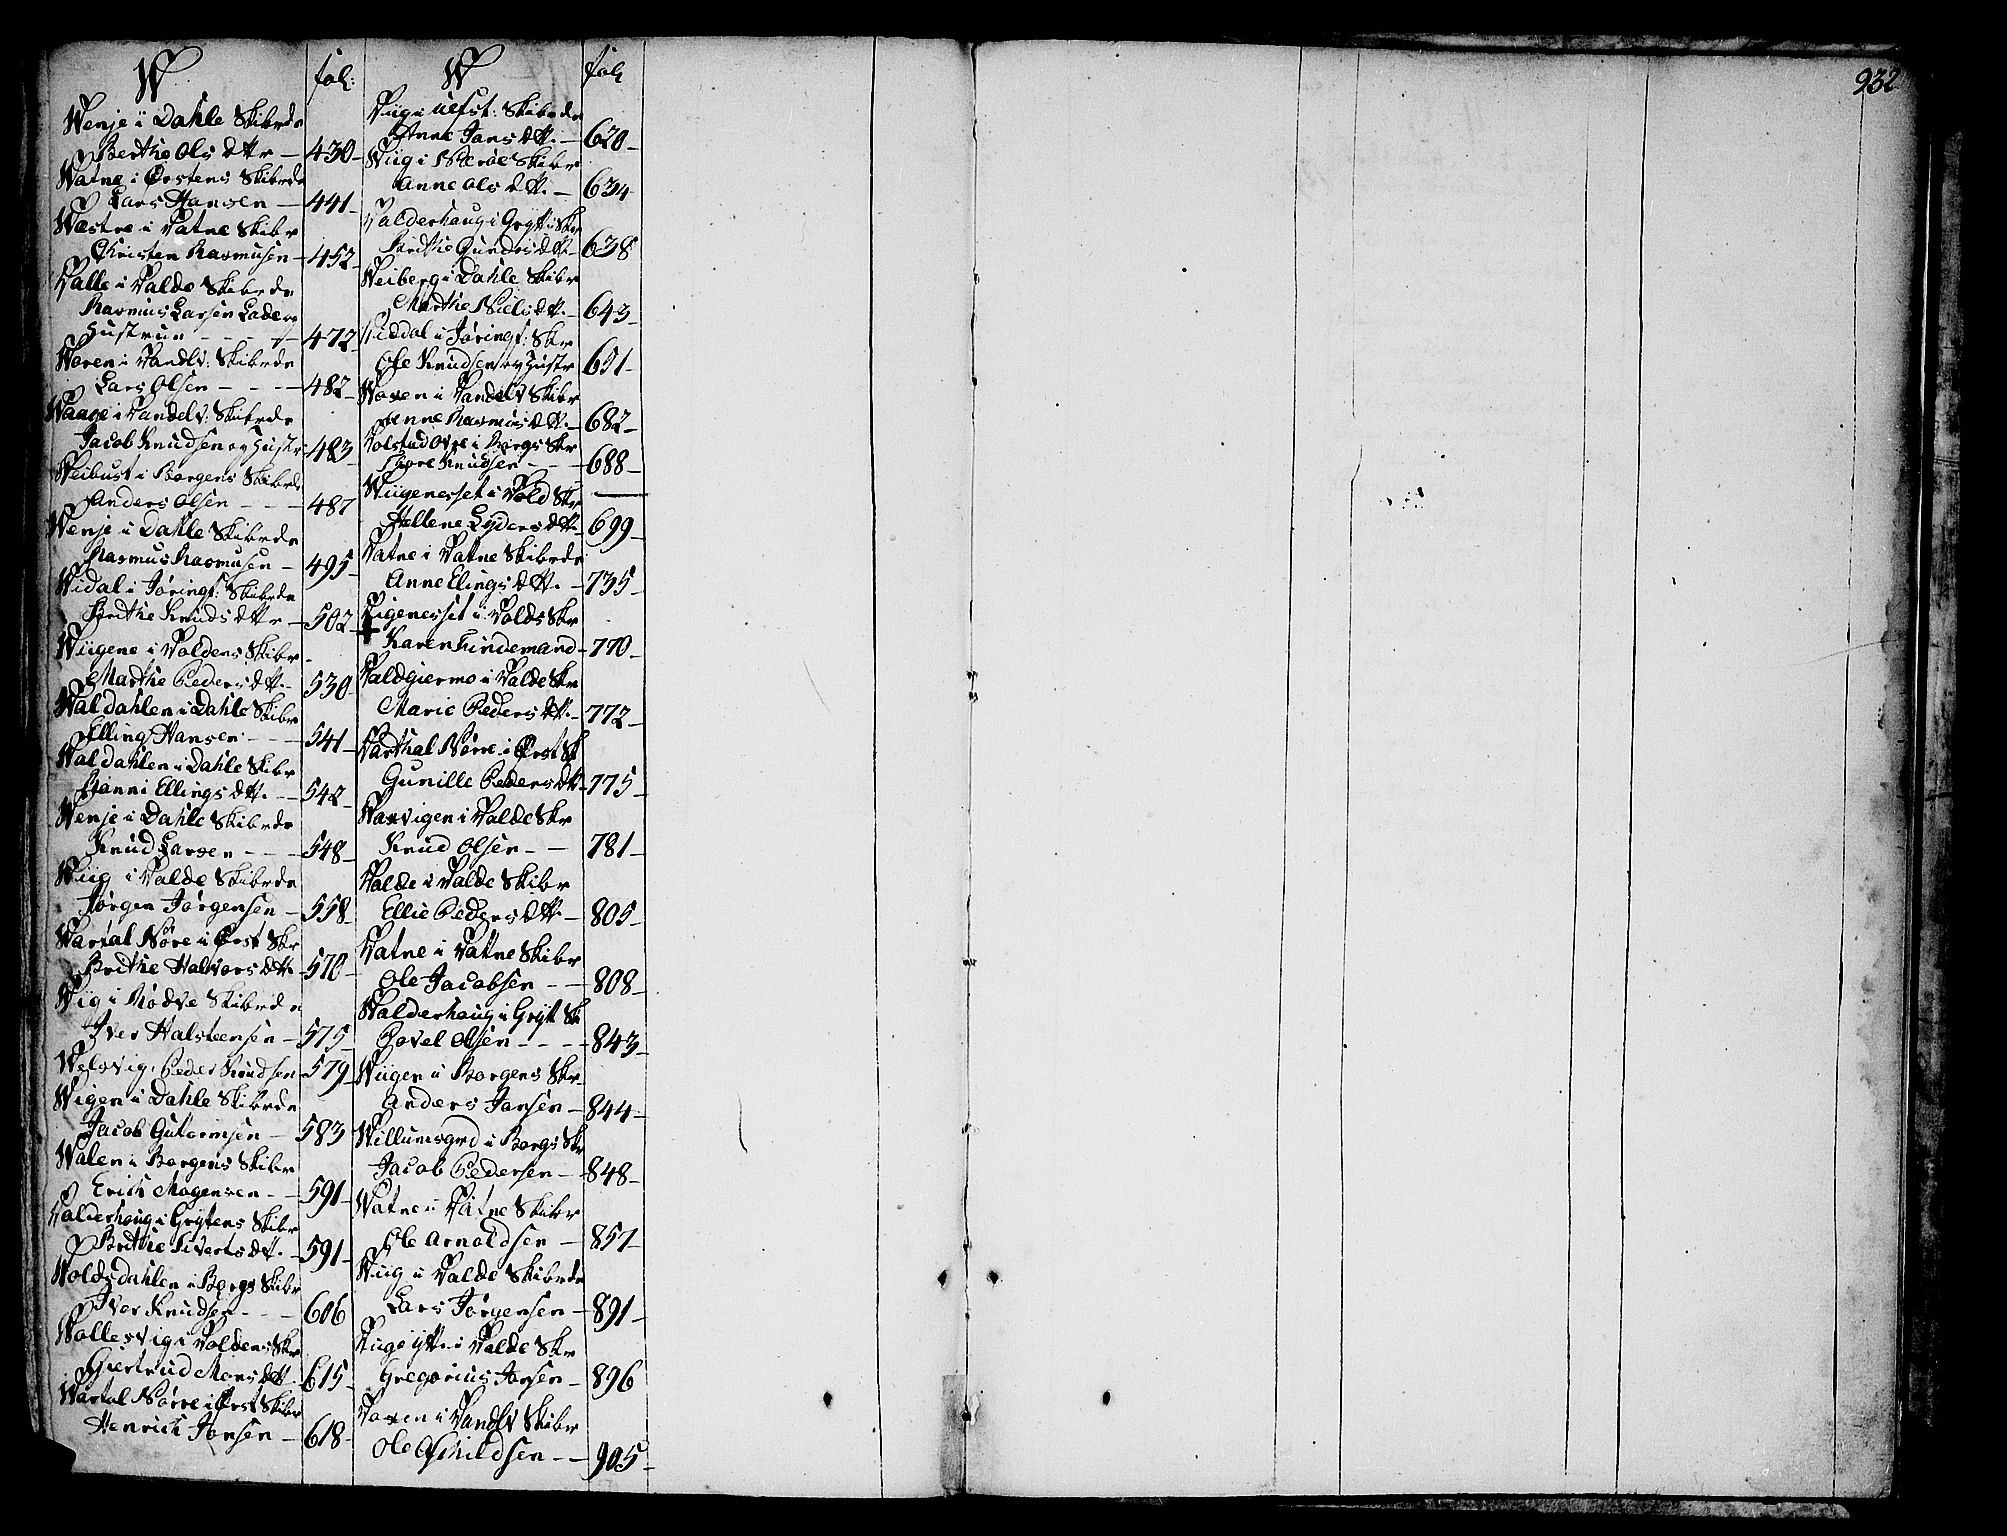 W. fol:
Wenje i Dahle Skibrde
Berthe Ols dttr — 430 —
Watne i Ørstens Skibrde
Lars Hansen — 441 —
Wæstre i Vatne Skibr
Christen Rasmusen — 452 —
Valle i Valde Skibrde
Rasmus Larsen Lade og
Hustrue — — — 472 —
Woxen i Vandlv: Skibrde
Lars Olsen — — — 482 —
Waage i Vandelv: Skibrde
Jacob Knudsen og Hustr: 483 —
Weibust i Borgens Skibrde
Anders Olsen — — — 487
Wenje i Dahle Skibrde
Rasmus Rasmusen — 495 —
Widal i Jøringf: Skibrde
Brithe Knuds dttr — 502 —
Wiigene i Voldens Skibr
Marthe Peders dtt. — 530
Waldahlen i Dahle Skibr
Elling Hansen — — — 541 —
Waldahlen i Dahle Skibr
Ranni Ellings dtt. — — 542 —
Wenje i Dahle Skibrde
Knud Larsen — — — 548 —
Wiig i Valde Skibrde
Jørgen Jørgensen — 558 —
Wartal Nøre i Ørst Skr
Brithe Halvors dtt. 570 —
Wiig i Rødve Skibrde
Iver Halsteensen — 575 —
Welsvig, Peder Knudsen — 579 —
Wigen i Dahle Skibrde
Jacob Gutormsen — 583
Walen i Borgens Skibr
Erich Mogensen — — 591 —
Valderhoug i Grytens Skibr
Brithe Siverts dtt. — 591 —
Woldsdahlen i Borgs Skibr
Iver Knudsen — — — 606
Wollesvig i Voldens Skr
Giertrud Mons dtt. — 615 —
Wartal Nørre i Ørst Skibr
Henrich Jonsen — 618 —
W fol
Viig i Ulfst: Skibrde
Anne Jans dtt. — 620 —
Wiig i Nærøe Skibr
Anne Ols dtt. — 634
Valderhaug i Gryt: Skr
Birthe Gunders dtt. — 638
Weiberg i Dahle Skibr
Marthe Niels dtt. — 643 —
Viddal i Jøringf: Skr
Ole Knudsen og Hustr 651 —
Woxen i Vandelv Skibr
Anne Rasmus dtt. — 682 —
Wolstad Øvre i Borgs Skr
Thore Knudsen — — — 688 —
Wiigenesset i Vold Skr
Hellene Lyders dtt. — 699 —
Vatne i Vatne Skibrde
Anne Elings dtt. — 735 —
Vigenesset i Volds Skr
Karen Lindemand — 770 —
Valdgiermo i Valde Skr
Marie Peders dtt. — 772 —
Varthal Nørre i Ørst Sk
Gunille Peders dtt — 775 —
Waxvigen i Valde Skr
Knud Olsen — — 781 —
Valde i Valde Skibr
Ellie Peders dtt. — 805 —
Vatne i Vatne Skibr
Ole Jacobsen — — 808 —
Walderhaug i Gryt Sk
Povel Olsen — — — 843 —
Wiigen i Borgens Skr
Anders Jonsen — 844 —
Willumsgrd i Borgs Skr
Jacob Pedersen — 848 —
Vatne i Vatne Skibr
Ole Arnoldsen — 857 —
Wiig i Valde Skibrde
Lars Jørgensen — 891 —
Gregorius Jonsen — 896
Voxen i Vandlv Skibr
Ole Eschildsen — — 905 —
932